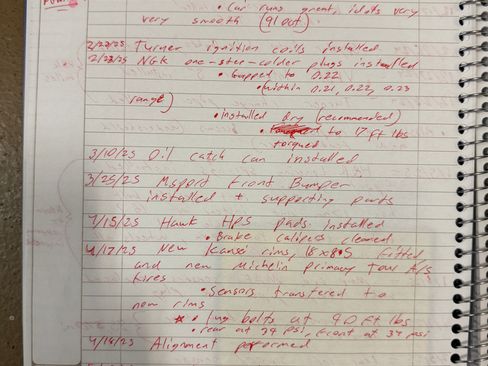 • Car runs great, idles very
very smooth (91 oct)
2/27/25 Turner ignition coils installed
2/28/25 NGK one-step-colder plugs installed
• Gapped to 0.22
• within 0.21, 0.22, 0.23
range)
• Installed Dry (recommended)
• to 17 ft lbs
torqued
3/10/25 Oil catch can installed
3/25/25 Msport Front Bumper
installed + supporting parts
4/15/25 Hawk HPS pads installed
• Brake calipers cleaned
4/17/25 New Kansei rims, 18x8.5 fitted
and new Michelin primacy tour A/s
tires
• Sensors transfered to
new rims
* • lug bolts at 90 ft lbs
• rear at 39 psi, front at 34 psi
4/18/25 Alignment performed